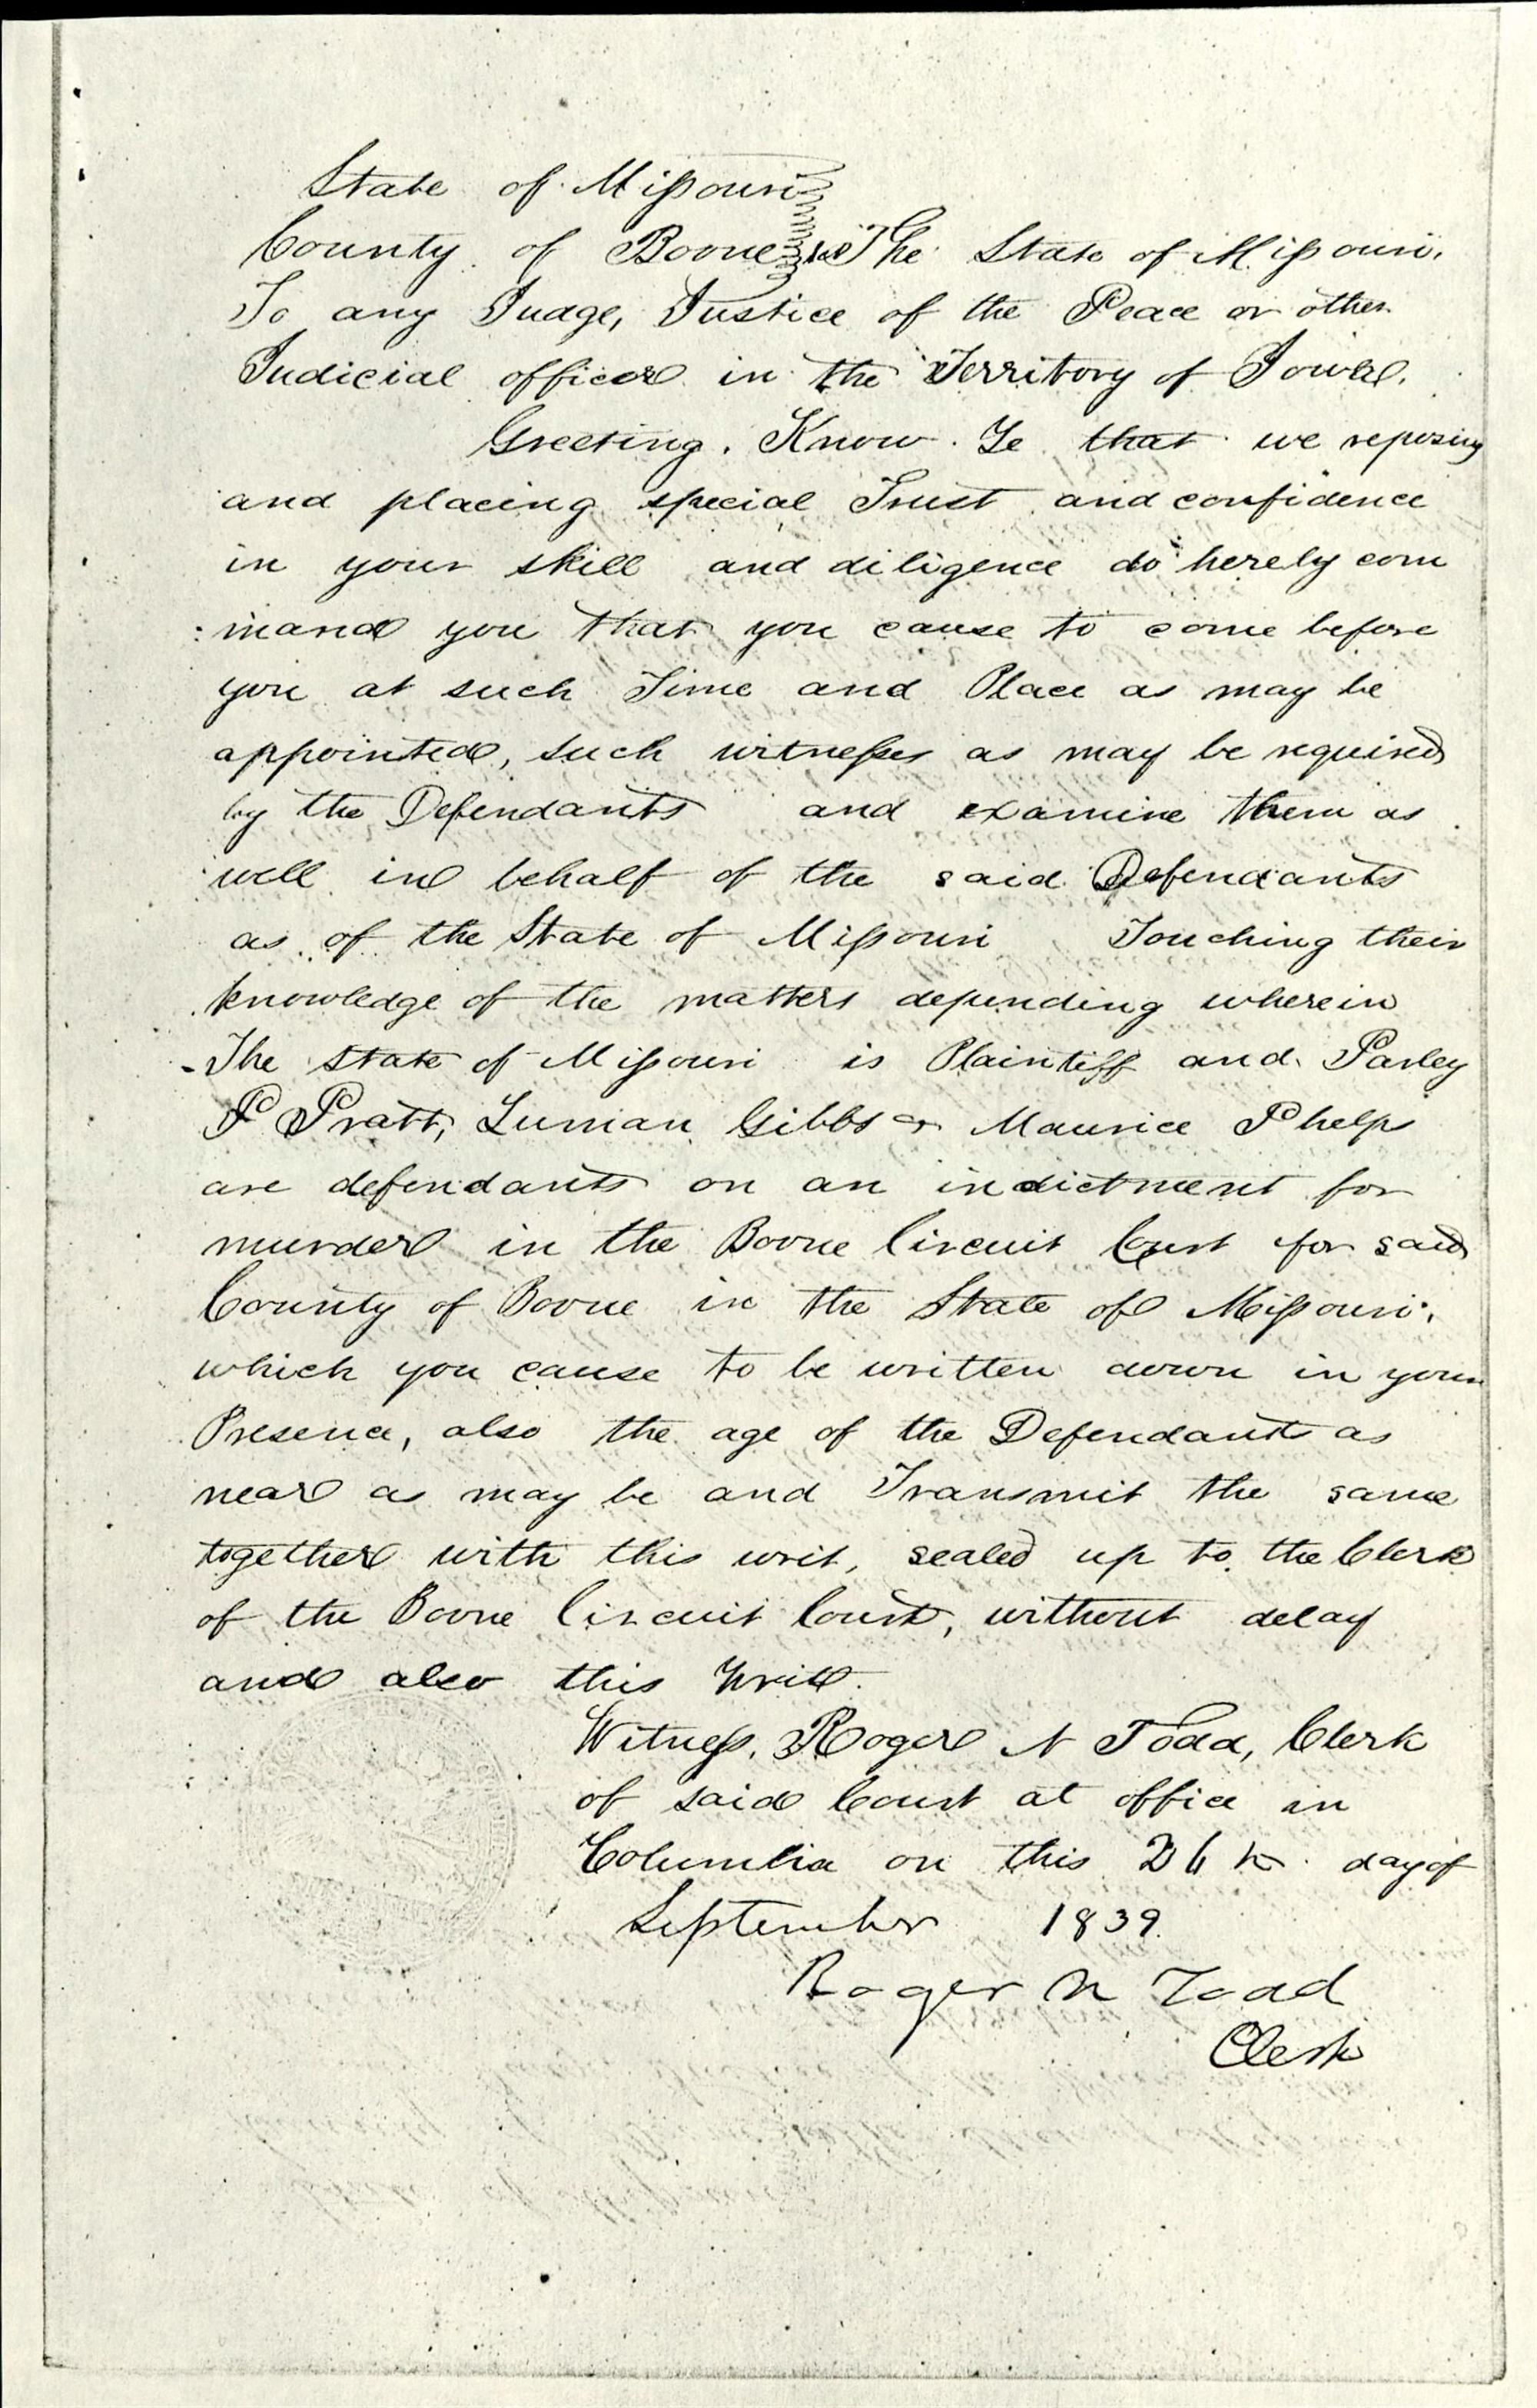 State of Missouri
County of Boone } ss The State of Missouri,
To any Judge, Justice of the Peace or other
Judicial officer in the Territory of Iowa.
Greeting. Know Ye that we reposing
and placing special Trust and confidence
in your skill and diligence do hereby com
mand you that you cause to come before
you at such Time and Place as may be
appointed, such witnesses as may be required
by the Defendants and examine them as
well in behalf of the said Defendants
as of the State of Missouri Touching their
knowledge of the matters depending wherein
The State of Missouri is Plaintiff and Parley
P Pratt, Luman Gibbs & Maurice Phelps
are defendants on an indictment for
murder in the Boone Circuit Court for said
County of Boone in the State of Missouri,
which you cause to be written down in your
Presence, also the age of the Defendants as
near as may be and Transmit the same
together with this writ, sealed up to the Clerk
of the Boone Circuit Court, without delay
and also this Writ.
Witness, Roger N Todd, Clerk
of said Court at office in
Columbia on this 26th day of
September 1839.
Roger N Todd
Clerk